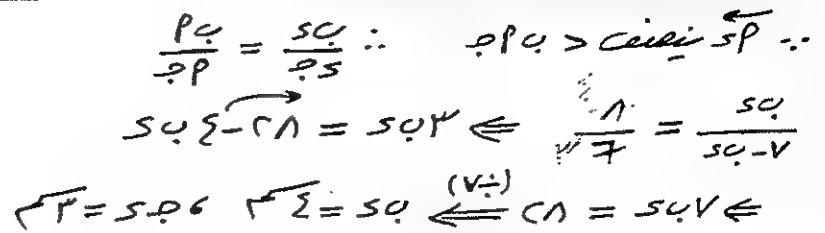 ∵ أد ينصف < ب أ ج ∴ ب د / د ج = ب أ / أ ج
ب د / ٧ - ب د = ٨ ٤ / ٦ ٣ ⇐ ٣ ب د = ٢٨ - ٤ ب د
⇐ ٧ ب د = ٢٨ (÷٧) ⇐ ب د = ٤ سم ، ج د = ٣ سم